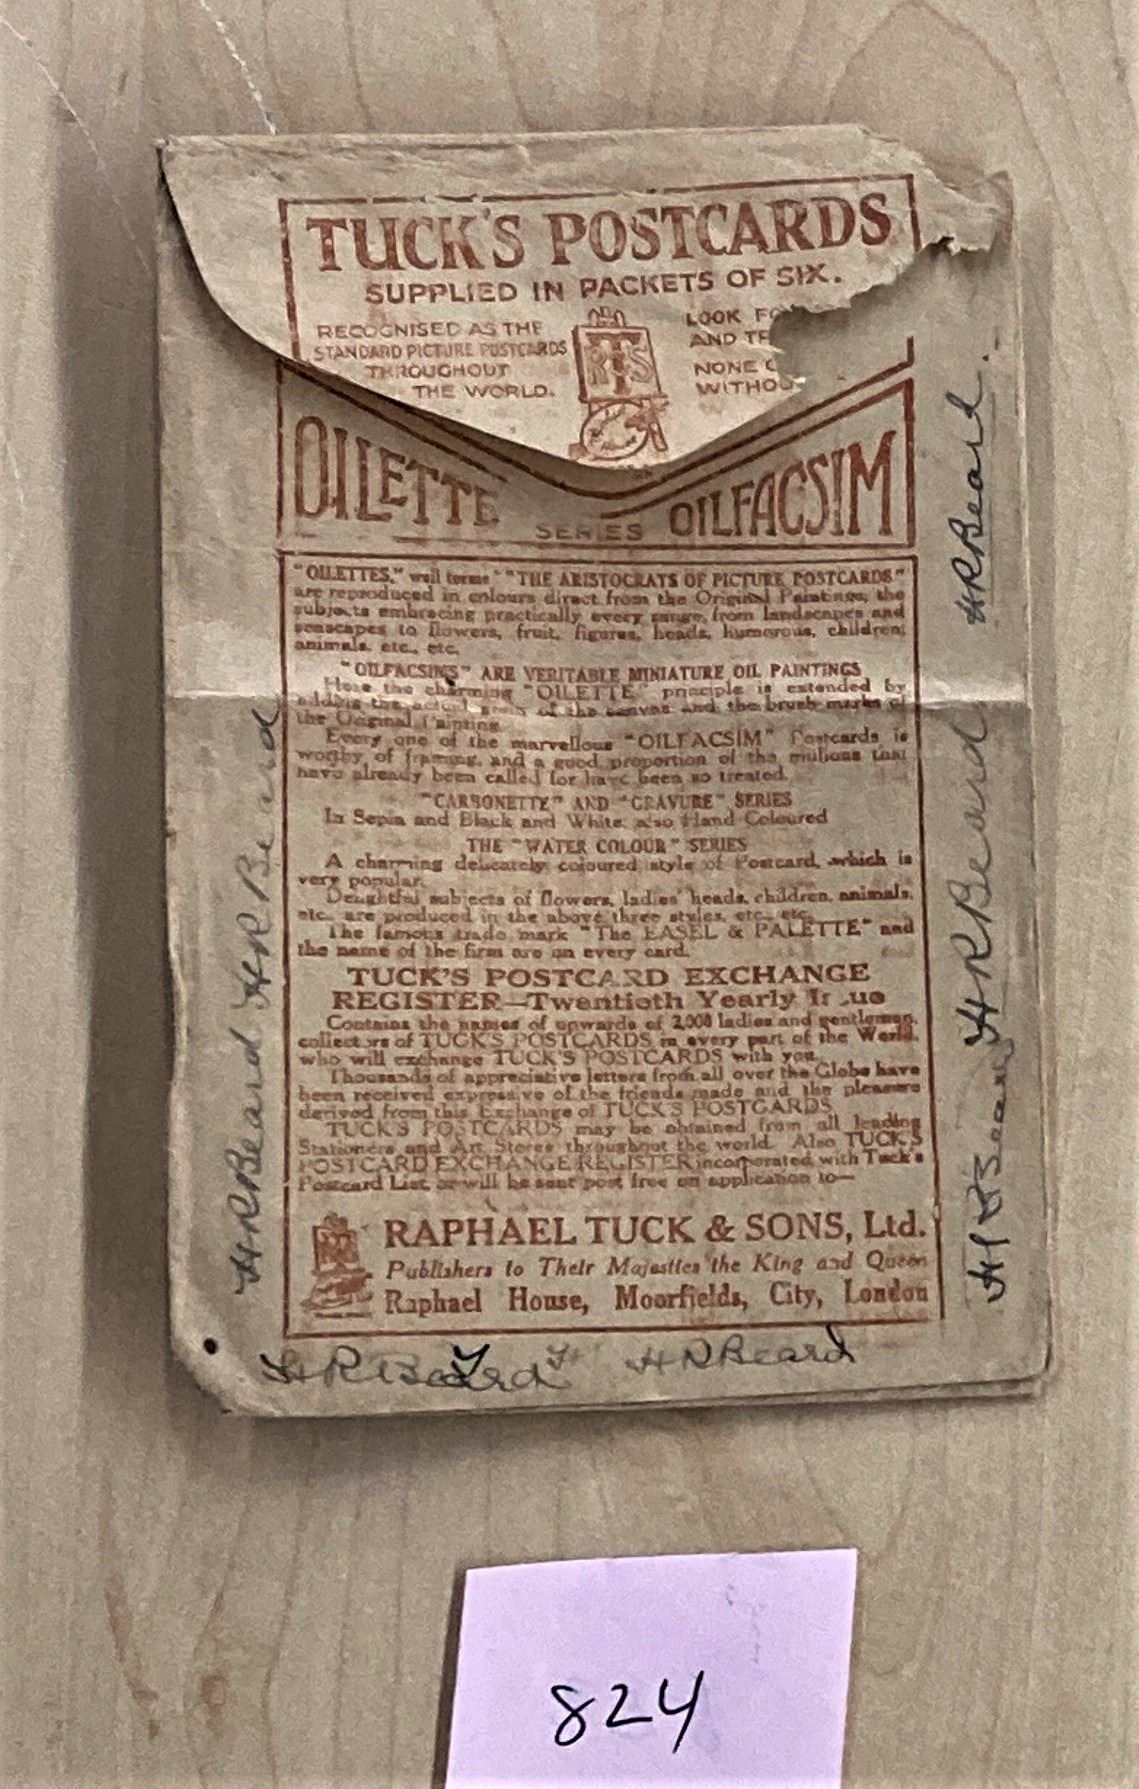 TUCK'S POSTCARDS
SUPPLIED IN PACKETS OF SIX.
RECOGNISED AS THE
STANDARD PICTURE POSTCARDS
THROUGHOUT
THE WORLD.
RTS
LOOK
AND
NONE
OILETTE SERIES OILFACSIM
"OILETTES," well "THE ARISTOCRATS OF PICTURE POSTCARDS"
are reproduced in colours direct from the Original Paintings, the
subjects embracing practically every range, from landscapes and
seascapes to flowers, fruit, figures, heads, humorous, children,
animals, etc., etc.
"OILFACSIMS" ARE VERITABLE MINIATURE OIL PAINTINGS
Here the charming "OILETTE" principle is extended by
adding the actual grain of the canvas and the brush marks of
the Original Painting.
Every one of the marvellous "OILFACSIM" Postcards is
worthy of framing, and a good proportion of the millions that
have already been called for have been so treated.
"CARBONETTE" AND "GRAVURE" SERIES
In Sepia and Black and White, also Hand Coloured
THE "WATER COLOUR" SERIES
A charming delicately coloured style of Postcard, which is
very popular.
Delightful subjects of flowers, ladies' heads, children, animals,
etc., are produced in the above three styles, etc., etc.
The famous trade mark "The EASEL & PALETTE" and
the name of the firm are on every card.
TUCK'S POSTCARD EXCHANGE
REGISTER—Twentieth Yearly Issue
Contains the names of upwards of 2,000 ladies and gentlemen,
collectors of TUCK'S POSTCARDS in every part of the World,
who will exchange TUCK'S POSTCARDS with you.
Thousands of appreciative letters from all over the Globe have
been received expressive of the friends made and the pleasure
derived from this Exchange of TUCK'S POSTCARDS.
TUCK'S POSTCARDS may be obtained from all leading
Stationers and Art Stores throughout the world. Also TUCK'S
POSTCARD EXCHANGE REGISTER incorporated with Tuck's
Postcard List, or will be sent post free on application to—
RAPHAEL TUCK & SONS, Ltd.
Publishers to Their Majesties the King and Queen
Raphael House, Moorfields, City, London
HRBeard HRBeard
HRBeard.
HRBeard
HRBeard
HRBeard HRBeard
824